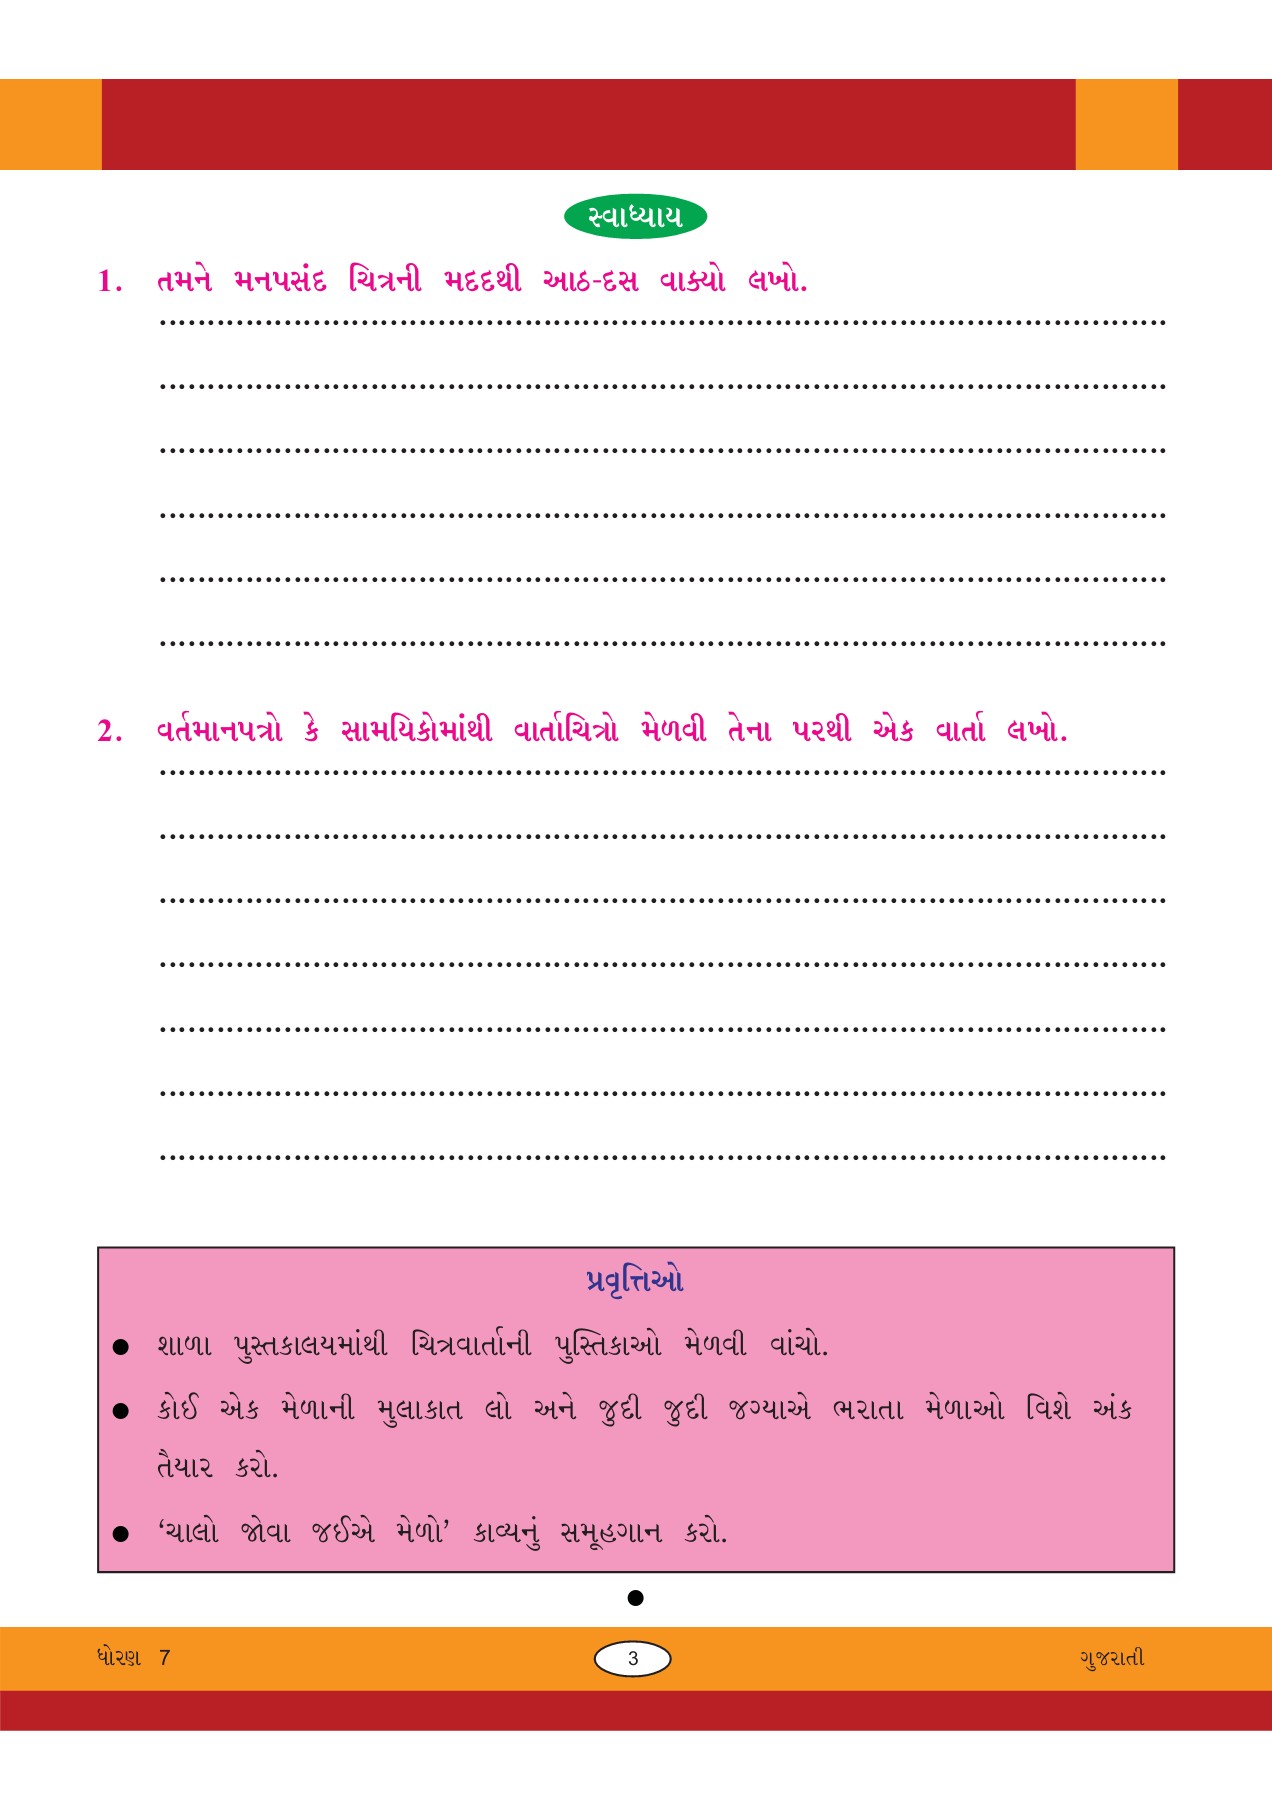 સ્વાધ્યાય
1. તમને મનપસંદ ચિત્રની મદદથી આઠ-દસ વાક્યો લખો.
2. વર્તમાનપત્રો કે સામયિકોમાંથી વાર્તાચિત્રો મેળવી તેના પરથી એક વાર્તા લખો.
પ્રવૃત્તિઓ
● શાળા પુસ્તકાલયમાંથી ચિત્રવાર્તાની પુસ્તિકાઓ મેળવી વાંચો.
● કોઈ એક મેળાની મુલાકાત લો અને જુદી જુદી જગ્યાએ ભરાતા મેળાઓ વિશે અંક
તૈયાર કરો.
● ‘ચાલો જોવા જઈએ મેળો’ કાવ્યનું સમૂહગાન કરો.
ધોરણ 7 3 ગુજરાતી